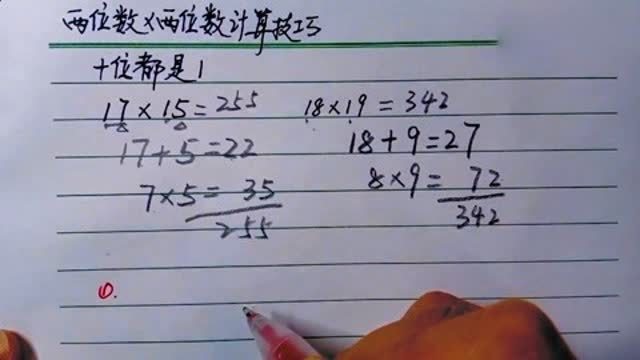 两位数×两位数计算技巧
十位都是1
17×15=255 18×19=342
17+5=22 18+9=27
7×5=35 8×9=72
255 342
①.